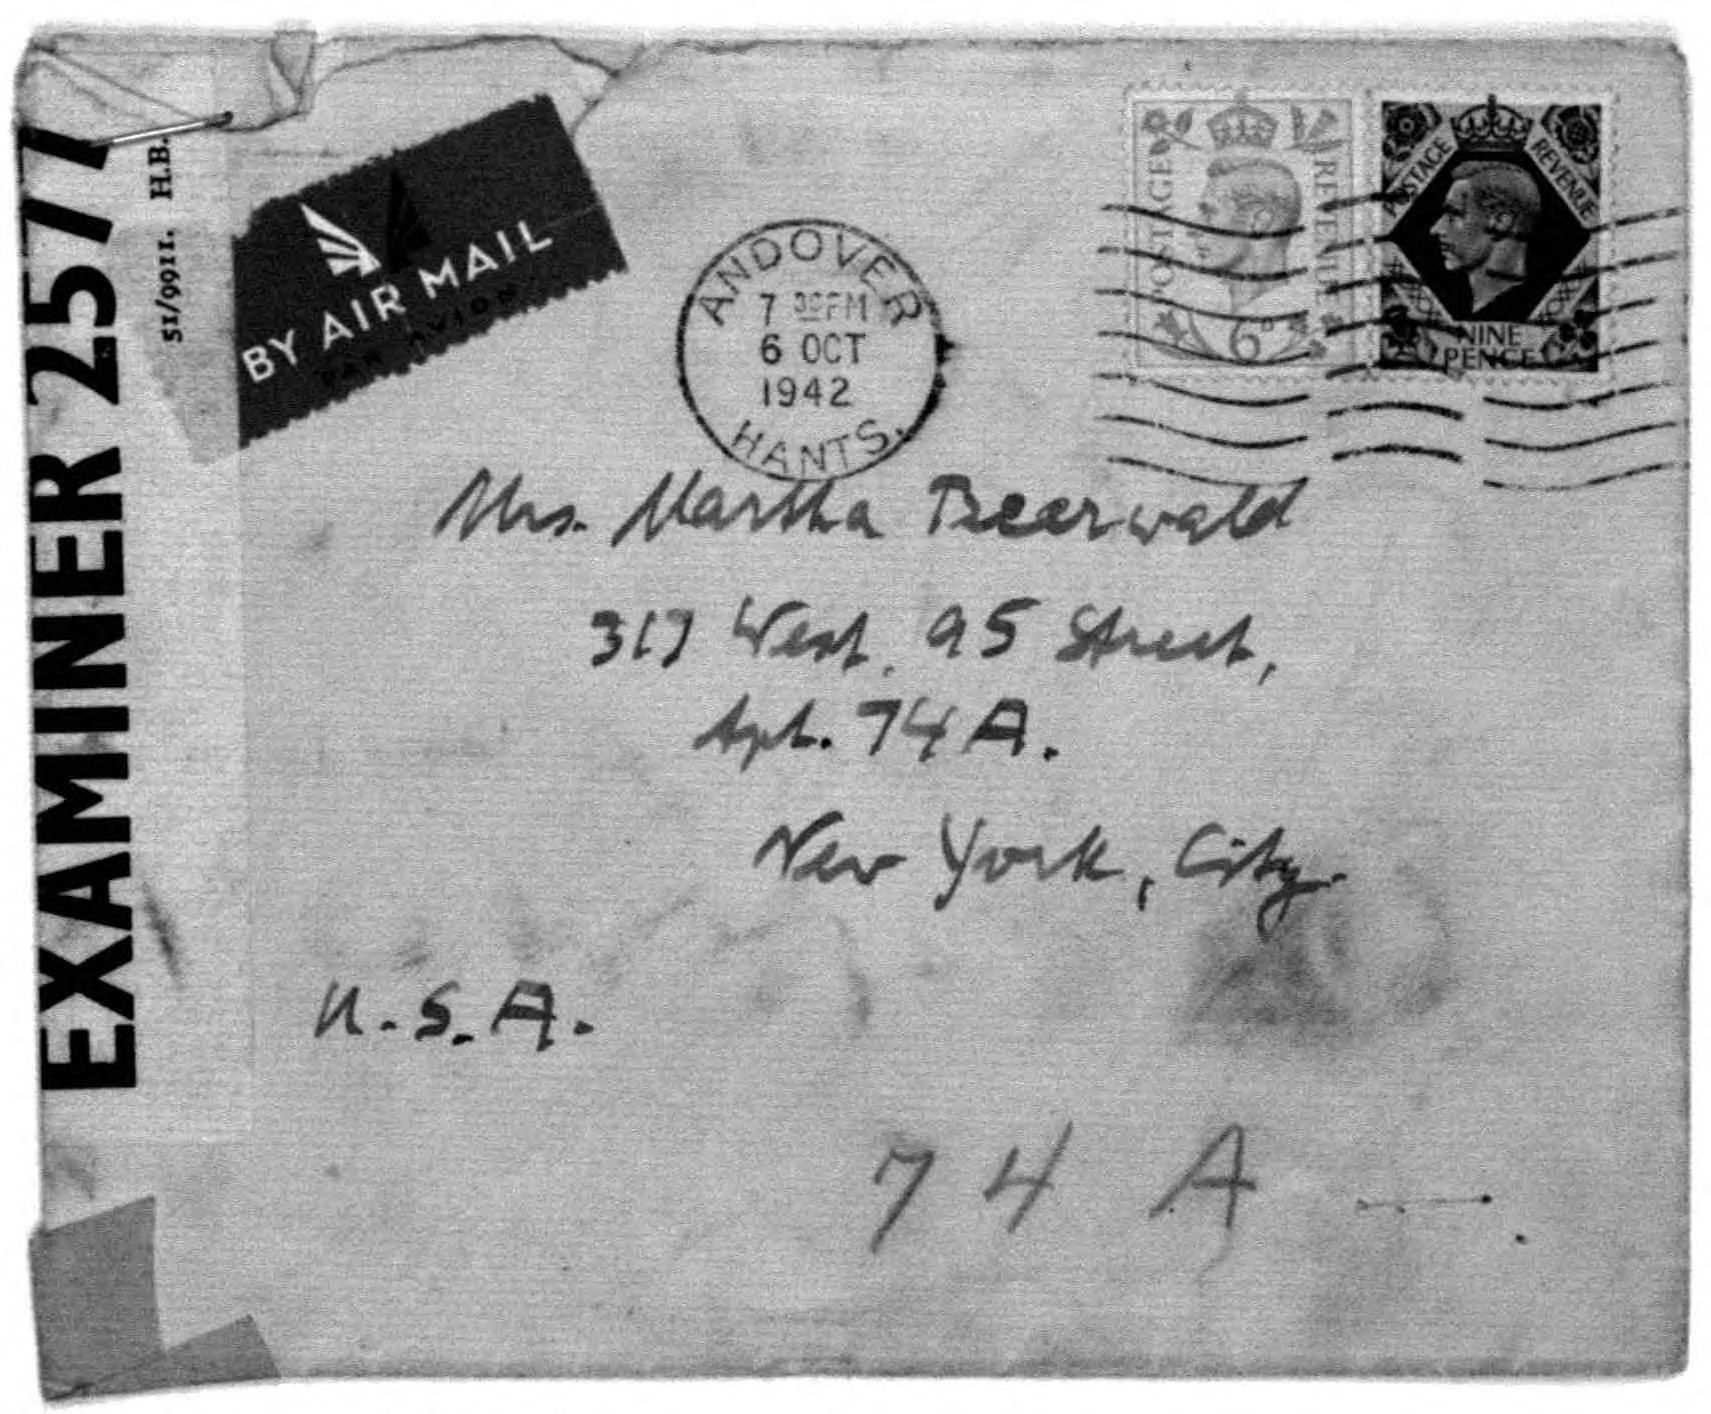 EXAMINER 2577
51/9911. H.B.
BY AIR MAIL
PAR AVION
ANDOVER
7 30PM
6 OCT
1942
HANTS.
POSTAGE REVENUE
6D
POSTAGE REVENUE
NINE
PENCE
Mrs. Martha Beerwald
317 West, 95 Street,
Apt. 74A.
New York, City.
U.S.A.
74 A